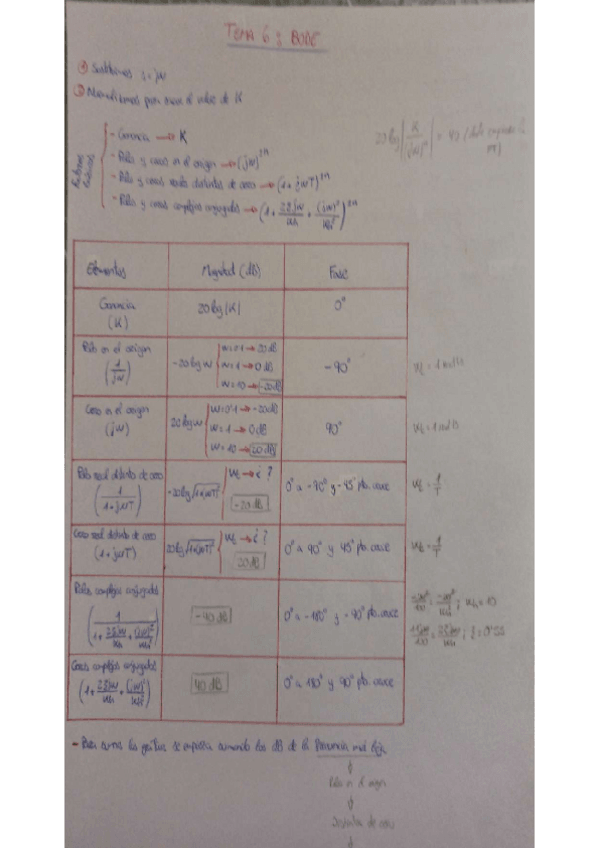 TEMA 6: BODE
① Sustituimos s = jw
② Normalizamos para sacar el valor de K
Factores básicos
- Ganancia → K
- Polos y ceros en el origen → (jw)^±n
- Polos y ceros reales distintos de cero → (1 + jwT)^±n
- Polos y ceros complejos conjugados → (1 + 2ξjw/wn + (jw)²/wn²)^±n
20 log |K/(jw)²| = 40 (
Elementos Magnitud (dB) Fase
Ganancia (K) 20 log |K| 0°
Polo en el origen (1/jw) -20 log w { w=0'1 → 20 dB -90° wc = 1 rad/s
w=1 → 0 dB
w=10 → -20 dB
Cero en el origen (jw) 20 log w { w=0'1 → -20dB 90° wc = 1 rad/s
w=1 → 0 dB
w=10 → 20 dB
Polo real distinto de cero (1/(1+jwT)) -20 log √1+(wT)² { wc → ¿? 0° a -90° y -45° pto. cruce wc = 1/T
-20 dB
Cero real distinto de cero (1+jwT) 20 log √1+(wT)² { wc → ¿? 0° a 90° y 45° pto. cruce wc = 1/T
20 dB
Polos complejos conjugados (1/(1 + 2ξjw/wn + (jw)²/wn²)) -40 dB 0° a -180° y -90° pto. cruce
-w²/100 = -w²/wn² ; wn = 10
Ceros complejos conjugados (1 + 2ξjw/wn + (jw)²/wn²) 40 dB 0° a 180° y 90° pto. cruce
- Para sumar las gráficas se empieza sumando los dB de la frecuencia más baja
↓
Polos en el origen
↓
Distintos de cero
↓